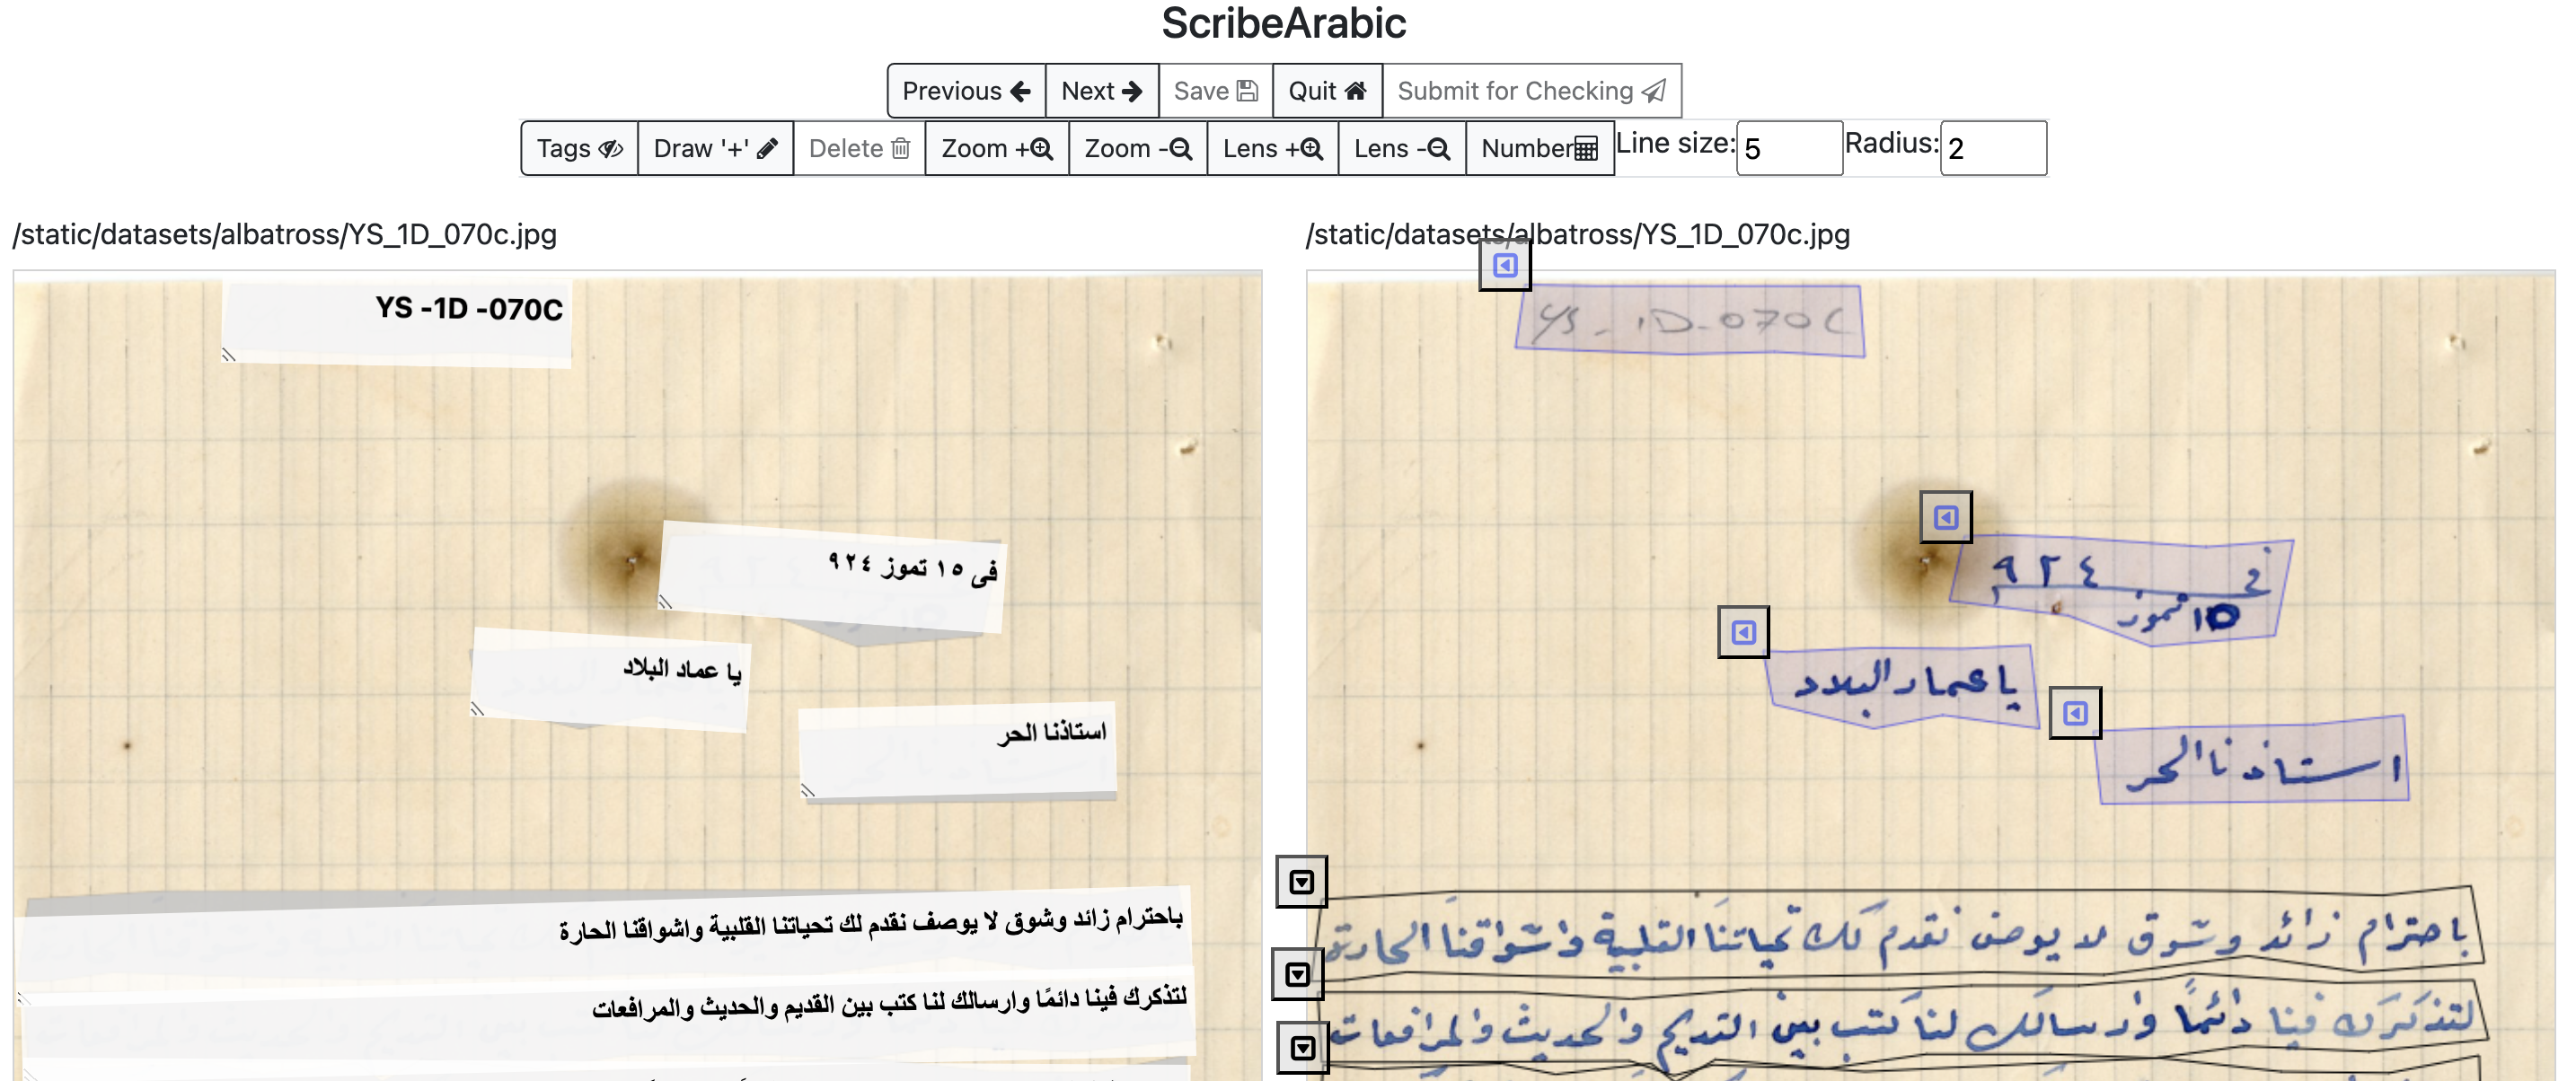 ScribeArabic
Previous Next Save Quit Submit for Checking
Tags Draw '+' Delete Zoom + Zoom - Lens + Lens - Number Line size: 5 Radius: 2
/static/datasets/albatross/YS_1D_070c.jpg
YS -1D -070C
فى ١٥ تموز ٩٢٤
يا عماد البلاد
استاذنا الحر
باحترام زائد وشوق لا يوصف نقدم لك تحياتنا القلبية واشواقنا الحارة
لتذكرك فينا دائمًا وارسالك لنا كتب بين القديم والحديث والمرافعات
/static/datasets/albatross/YS_1D_070c.jpg
YS - 1D - 070C
في ٩٢٤
١٥ تموز
يا عماد البلاد
استاذنا الحر
باحترام زائد وشوق لا يوصف نقدم لك تحياتنا القلبية واشواقنا الحارة
لتذكرك فينا دائمًا وارسالك لنا كتب بين القديم والحديث والمرافعات